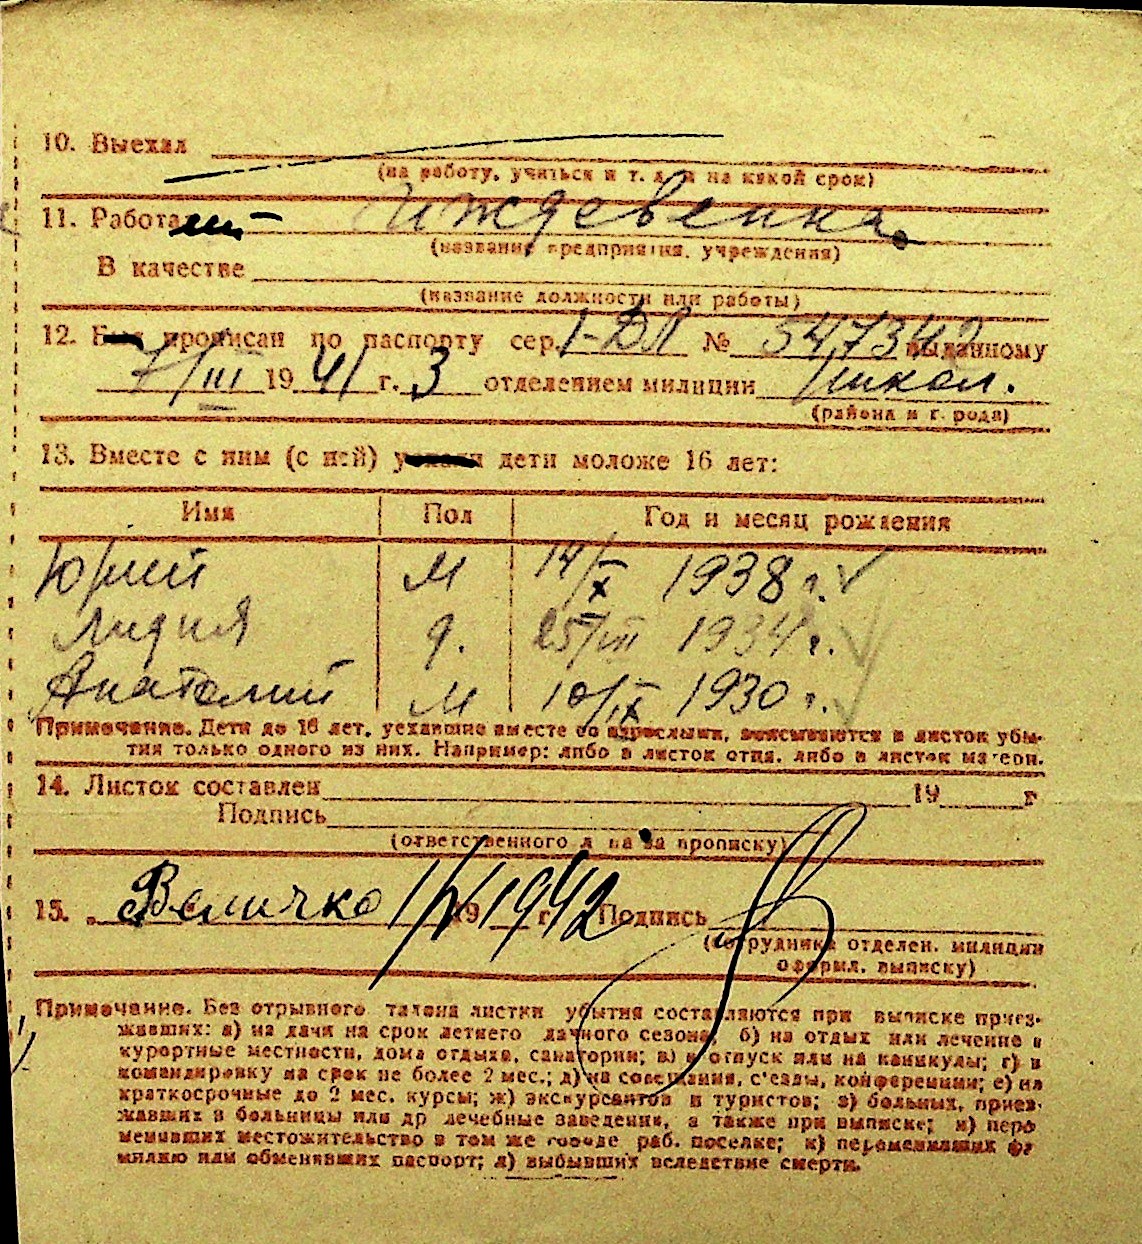 10. Выехал
(на работу, учиться и т. д. и на какой срок)
11. Работа Иждевенка.
(название предприятия, учреждения)
В качестве
(название должности или работы)
12. прописан по паспорту сер. I-ДЛ № 547342 выданному
7/III 1941 г. 3 отделением милиции
(района и города)
13. Вместе с ним (с ней) дети моложе 16 лет:
Имя Пол Год и месяц рождения
Юрий М 14/X 1938 г.
Лидия д. 25/VII 1934 г.
Анатолий М 10/IX 1930 г.
Примечание. Дети до 16 лет, уехавшие вместе со взрослыми, вписываются в листок убы-
тия только одного из них. Например: либо в листок отца, либо в листок матери.
14. Листок составлен 19 г
Подпись
(ответственного л ца за прописку)
15. Величко 1942 г. Подпись
(сотрудника отделен. милиции
оформл. выписку)
Примечание. Без отрывного талона листки убытия составляются при выписке приез-
жавших: а) на дачи на срок летнего дачного сезона; б) на отдых или лечение в
курортные местности, дома отдыха, санатории; в) в отпуск или на каникулы; г) в
командировку на срок не более 2 мес.; д) на совещания, с'езды, конференции; е) на
краткосрочные до 2 мес. курсы; ж) экскурсантов и туристов; з) больных, приез-
жавших в больницы или др лечебные заведения, а также при выписке; и) пере
менивших местожительство в том же городе раб. поселке; к) переменивших фа
милию или обменявших паспорт; л) выбывших вследствие смерти.